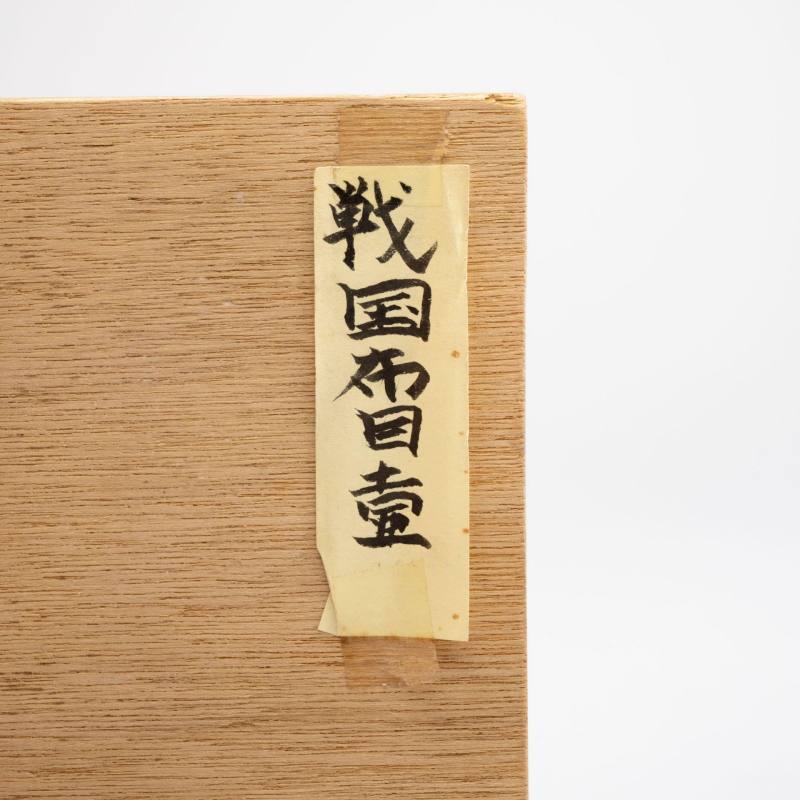 戦国布目壷